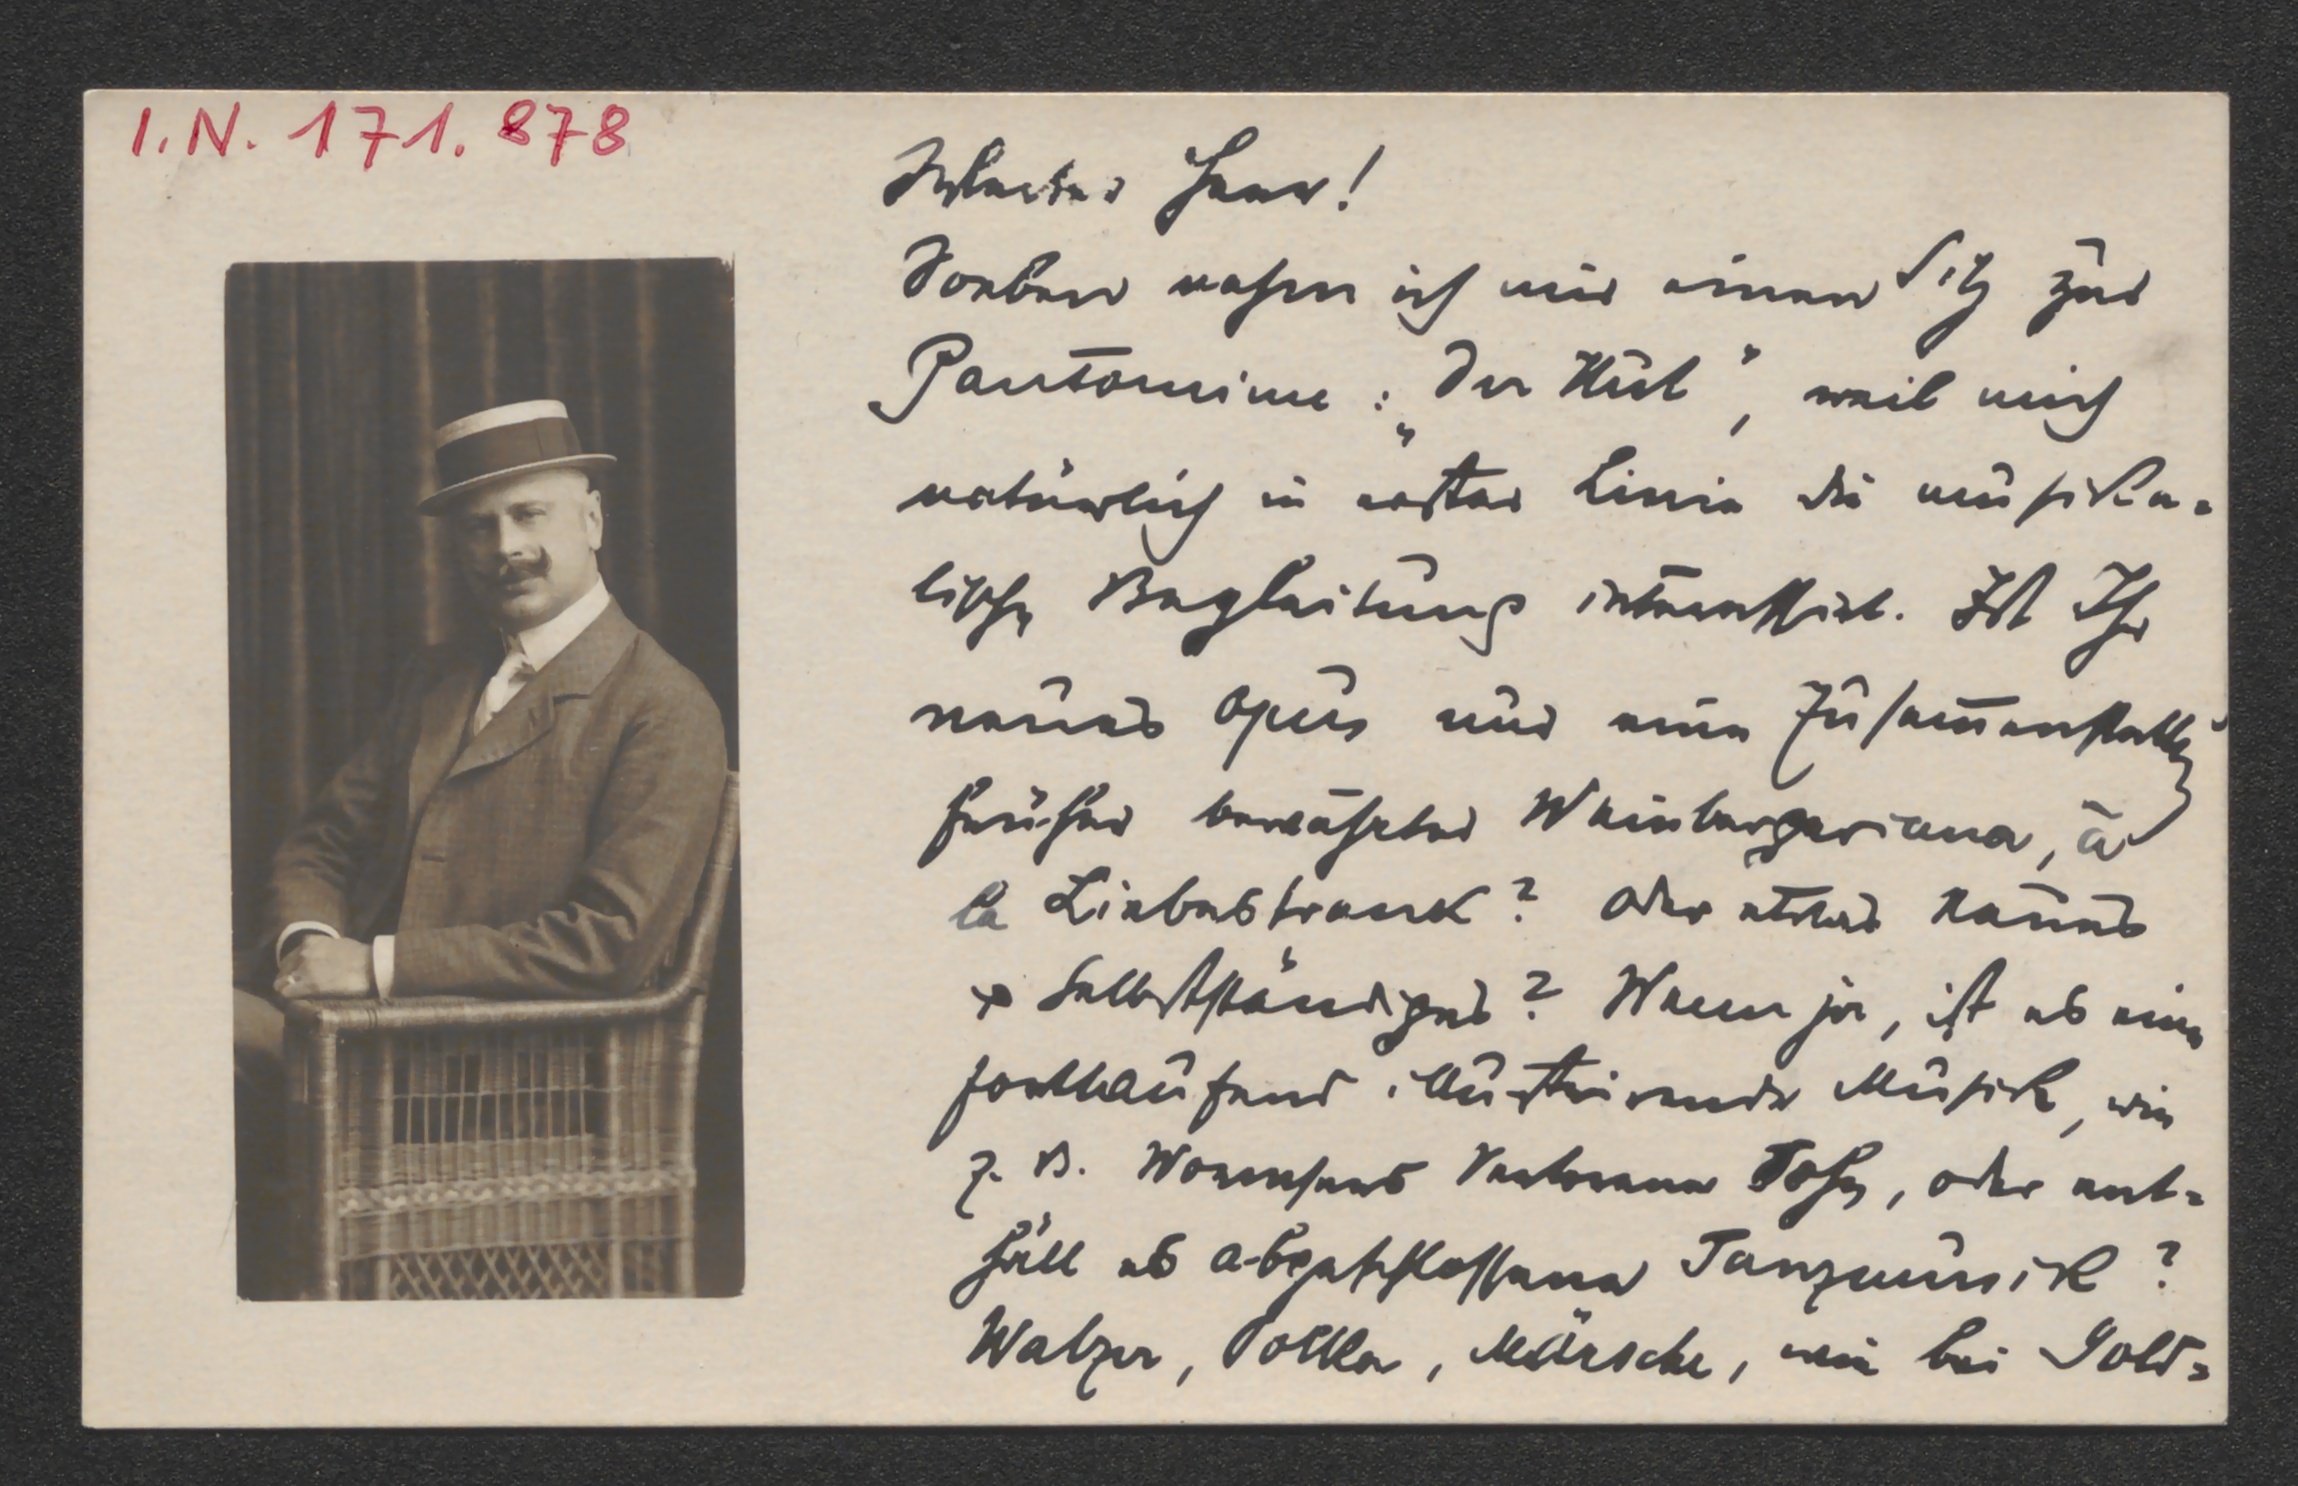 I.N. 171.878
Geehrter Herr!
Soeben nahm ich mir einen Sitz zur
Pantomime: „Der Hut", weil mich
natürlich in erster Linie die musika-
lische Begleitung interessirt. Ist Ihr
neues Opus nur eine Zusam̅enstellg
früher bewährter Weinbergeriana, à
la Liebestrank? Oder etwas Neues
Selbstständiges? Wenn ja, ist es eine
fortlaufend illustrirende Musik, wie
z. B. Wormsers Verlorener Sohn, oder ent-
hält es abgeschlossene Tanzmusik?
Walzer, Polka, Märsche, wie bei Gold-